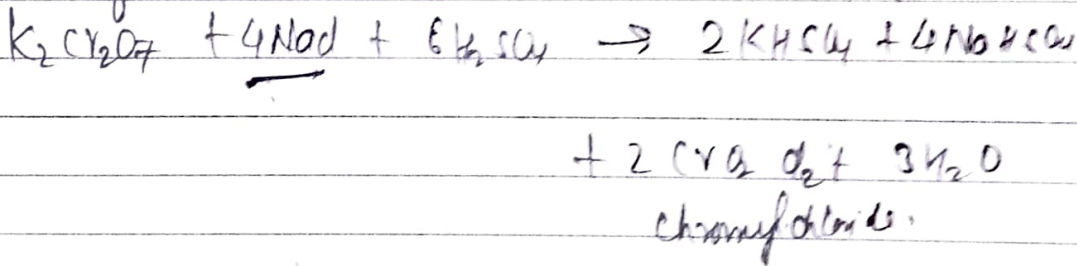 K₂Cr₂O₇ + 4NaCl + 6H₂SO₄ → 2KHSO₄ + 4NaHSO₄
+ 2CrO₂Cl₂ + 3H₂O
Chromyl chloride.